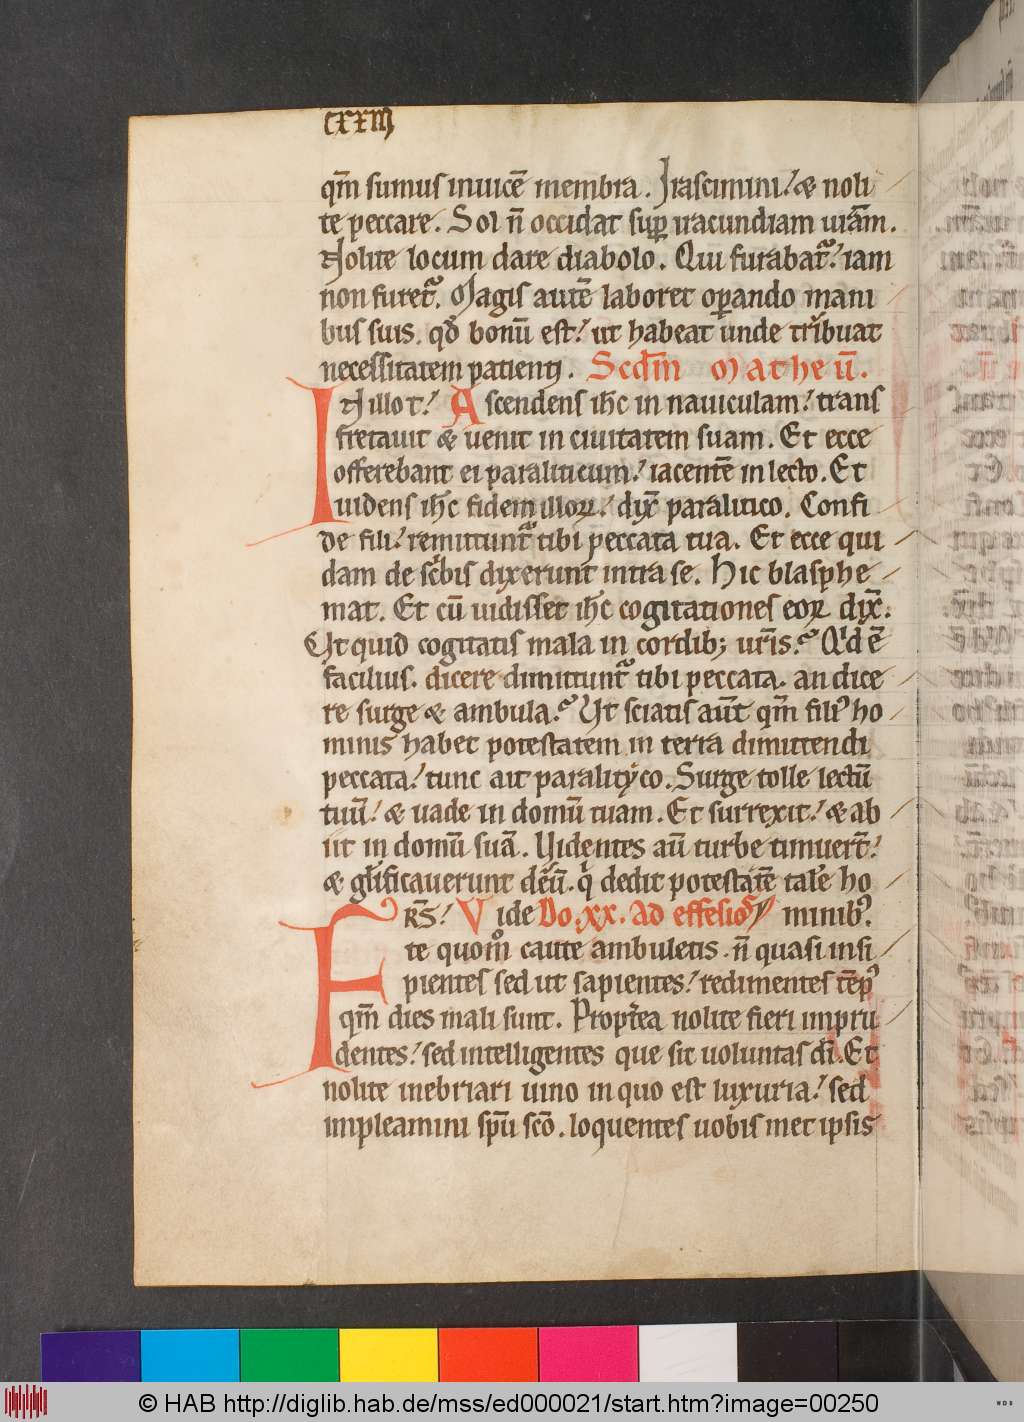 cxxiiij
qm̄ sumus inuicē membra. Irascimini! & noli
te peccare. Sol n̄ occidat suꝑ iracundiam ur̄am.
Nolite locum dare diabolo. Qui furabat᷑! iam
non furet᷑. Magis autē laboret oꝑando mani
bus suis. qđ bonū est! ut habeat unde tribuat
necessitatem patienti. Scđm Matheū.
IN illo t̄! Ascendens ih̄c in nauiculam! trans
fretauit & uenit in ciuitatem suam. Et ecce
offerebant ei paraliticum! iacentē in lecto. Et
uidens ih̄c fidem illoꝝ! dix̄ paralitico. Confi
de fili! remittunt᷑ tibi peccata tua. Et ecce qui
dam de sc̄bis dixerunt intra se. Hic blasphe
mat. Et cū uidisset ih̄c cogitationes eoꝝ dix̄.
Ut quid cogitatis mala in cordib; ur̄is? Qͥd ē
facilius. dicere dimittunt᷑ tibi peccata. an dice
re surge & ambula? Ut sciatis aūt qm̄ filiꝰ ho
minis habet potestatem in terra dimittendi
peccata! tunc ait paralityco. Surge tolle lectū
tuū! & uade in domū tuam. Et surrexit! & ab
iit in domū suā. Uidentes aū turbe timuert̄!
& gl̄ificauerunt dēū. qͥ dedit potestatē talē ho
FRS̄! Vide Do. xx. Ad effesios minibꝰ.
te quom̊ caute ambuletis. n̄ quasi insi
pientes sed ut sapientes! redimentes tēpꝰ
qm̄ dies mali sunt. Propt̄ea nolite fieri impru
dentes! sed intelligentes que sit uoluntas dī. Et
nolite inebriari uino in quo est luxuria! sed
impleamini sp̄u sc̄o. loquentes uobis met ipsis
© HAB http://diglib.hab.de/mss/ed000021/start.htm?image=00250